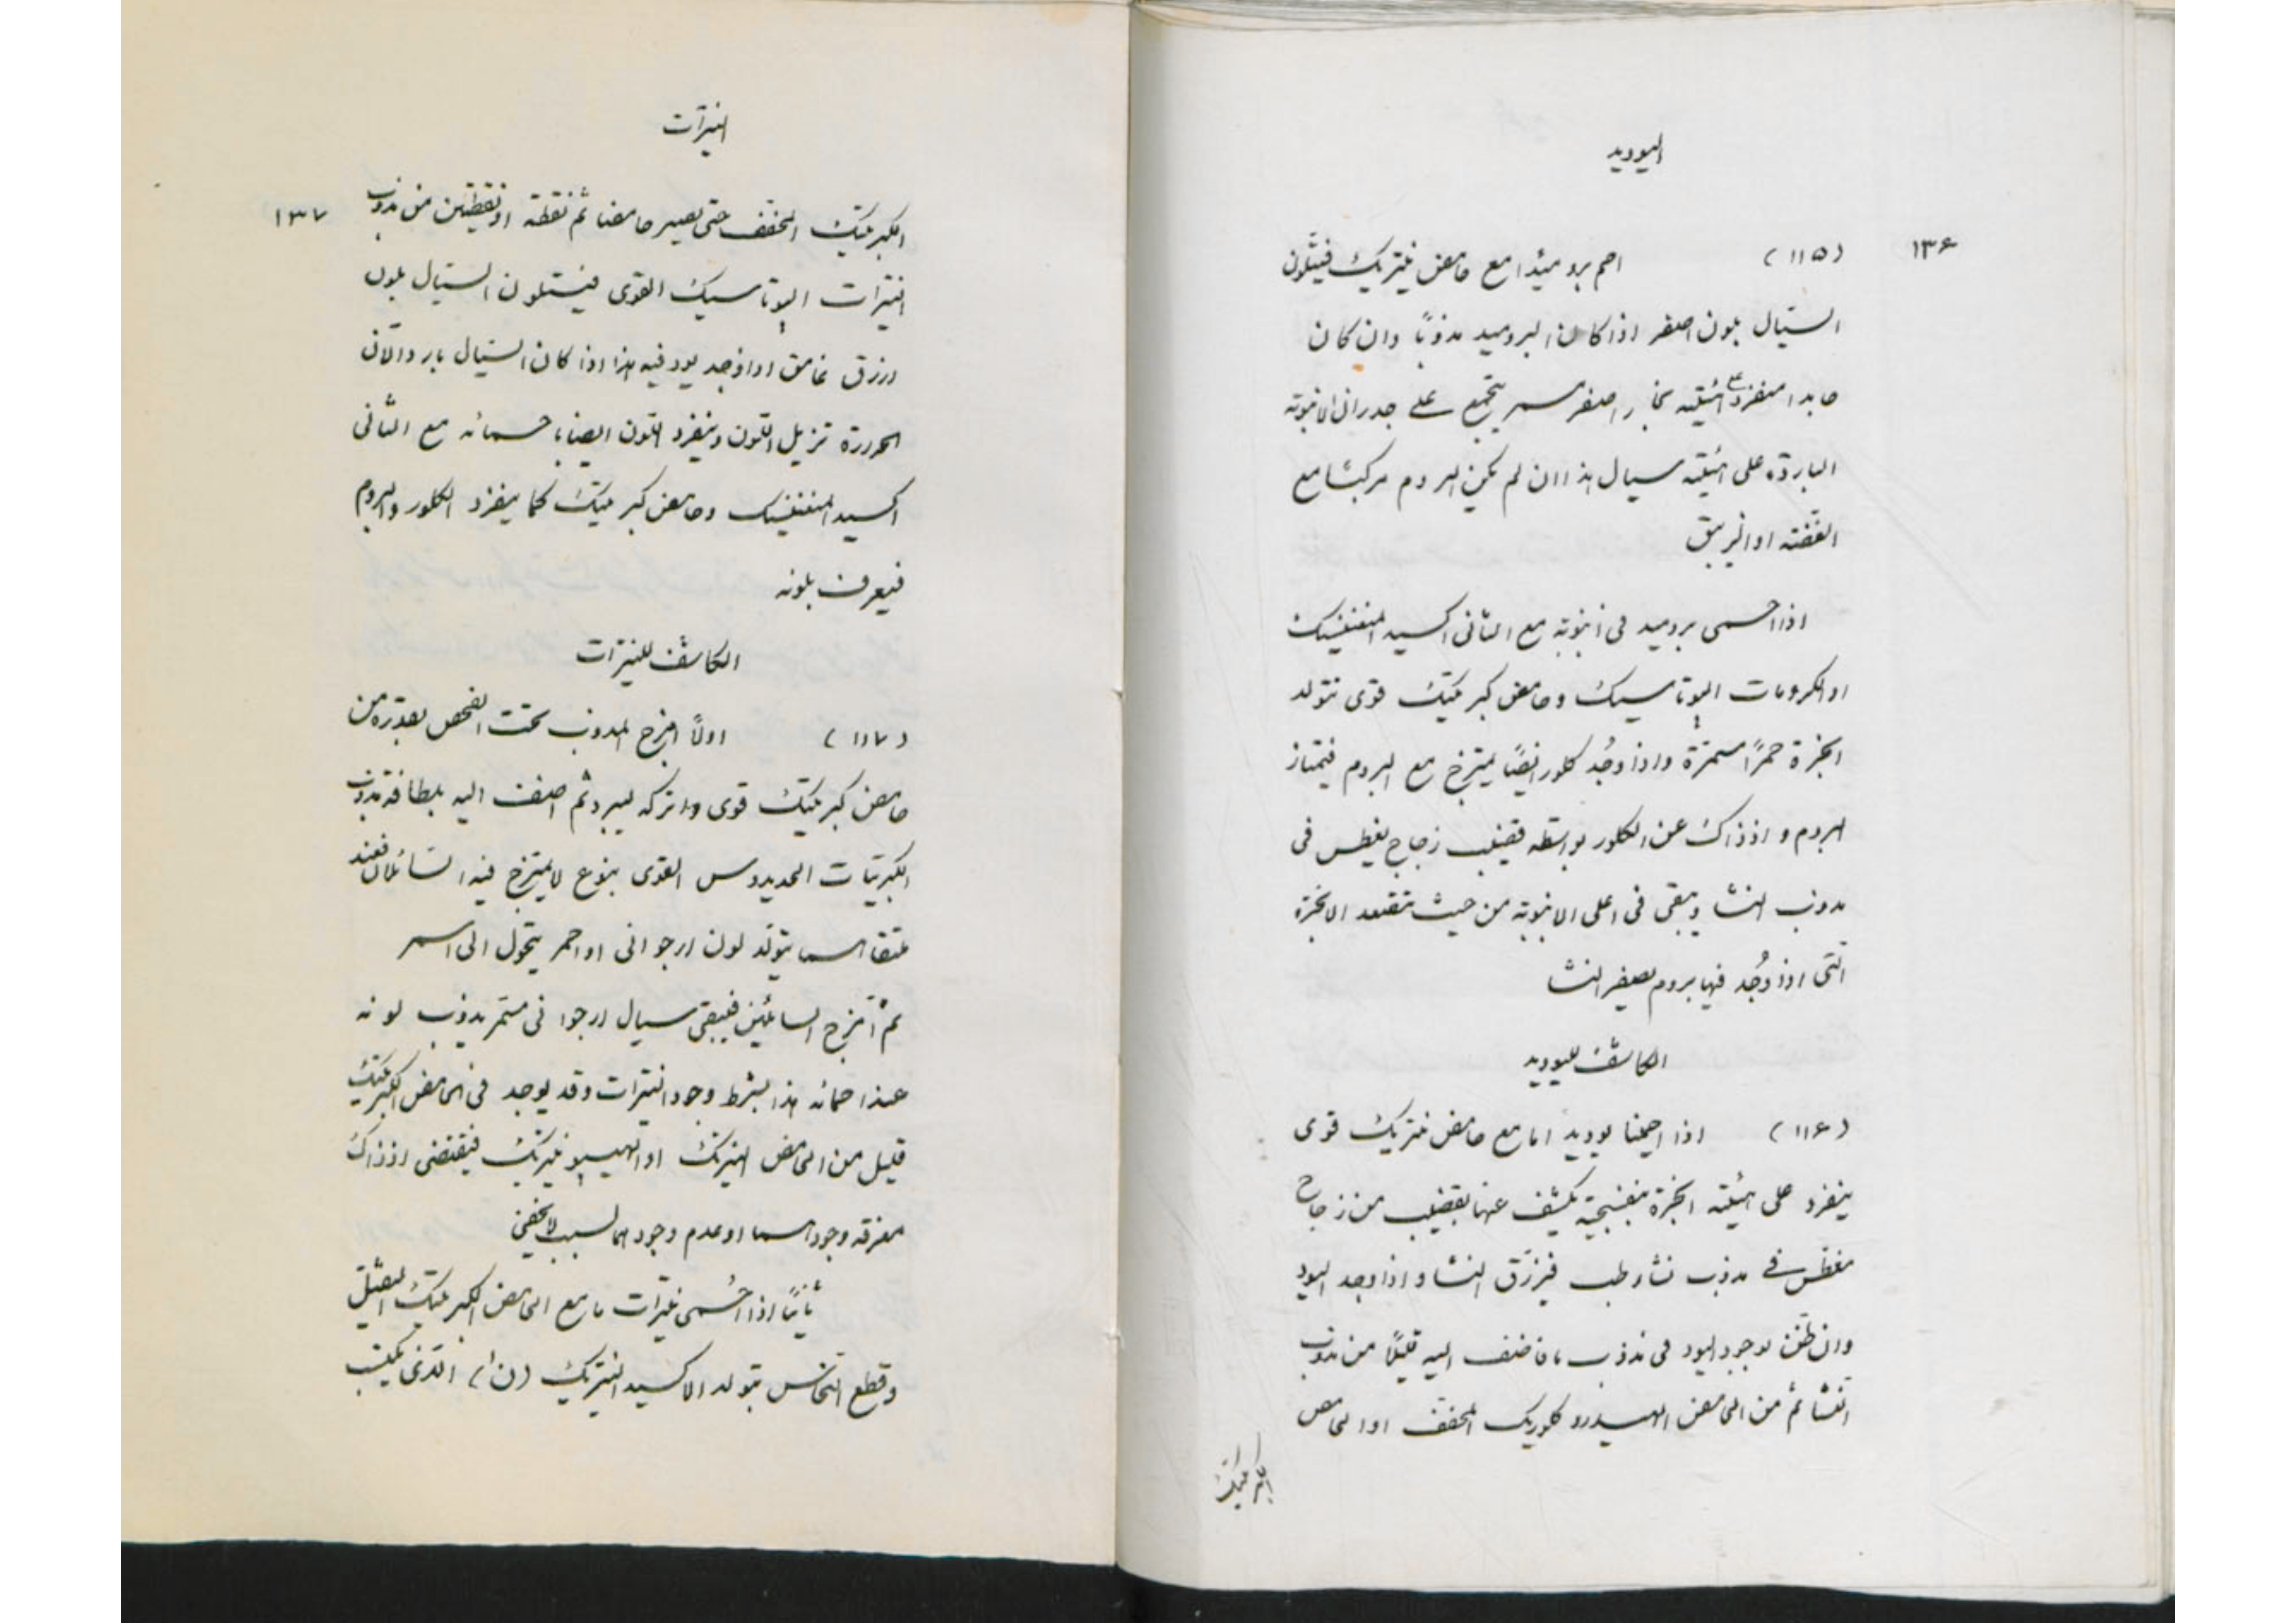 اليوديد
١٣۶
(١١۵) احم بروميدا مع حامض نيتريك فيتلون
السيال بلون اصفر اذا كان البروميد مذوبًا وان كان
جامدا ينفرد على هيئة بخار اصفر مسمر يتجمع على جدران الانبوبة
الباردة على هيئة سيال هذا ان لم يكن البروم مركبًا مع
الفضة او الزيبق
اذا احمى بروميد فى انبوبة مع الثانى اكسيد المنغنيسيك
او الكرومات البوتاسيك وحامض كبريتيك قوى تتولد
ابخرة حمرًا مسمرة واذا وجُد كلور ايضًا يمتزج مع البروم فيمتاز
البروم و اذ ذاك عن الكلور بواسطة قضيب زجاج يغطس فى
مذوب النشا ويبقى فى اعلى الانبوبة من حيث تتصعد الابخرة
التى اذا وُجد فيها بروم يصفر النشا
الكاشف لليوديد
(١١۶) اذا احمينا يوديد اما مع حامض نيتريك قوى
ينفرد على هيئة ابخرة بنفسجية يكشف عنها بقضيب من زجاج
مغطس فى مذوب نشا رطب فيزرّق النشا و اذا وجد اليود
وان ظنن بوجود اليود فى مذوب ما فاضف اليه قليلًا من مذوب
النشا ثم من الحامض الهيدروكلوريك المخفف او الحامض
الكبريتيك
النيترات
١٣٧
الكبريتيك المخفف حتى يصير حامضا ثم نقطة او نقطتين من مذوب
النيترات البوتاسيك القوى فيتلون السيال بلون
ازرق غامق اذا وجد يود فيه هذا اذا كان السيال باردا لان
الحرارة تزيل اللون وينفرد اللون ايضا باحمائه مع الثانى
اكسيد المنغنيسيك وحامض كبريتيك كما ينفرد الكلور والبروم
فيعرف بلونه
الكاشف للنيترات
(١١٧) اولًا امزج المذوب تحت الفحص بقدره من
حامض كبريتيك قوى واتركه ليبرد ثم اضف اليه بلطافة مذوب
الكبريتات الحديدوس القوى بنوع لا يمتزج فيه السائلان فعند
ملتقاهما يتولد لون ارجوانى او احمر يتحول الى اسمر
ثم امزج السائلين فيبقى سيال ارجوانى مستمر يذوب لونه
عند احمائه هذا بشرط وجود النيترات وقد يوجد فى الحامض الكبريتيك
قليل من الحامض النيتريك او الهيپونيتريك فيقتضى اذ ذاك
معرفة وجودهما او عدم وجودهما لسبب لا يخفى
ثانيًا اذا احُمى نيترات ما مع الحامض الكبريتيك الثقيل
وقطع النحاس يتولد الاكسيد النيتريك (ن ا) الذى يكتسب